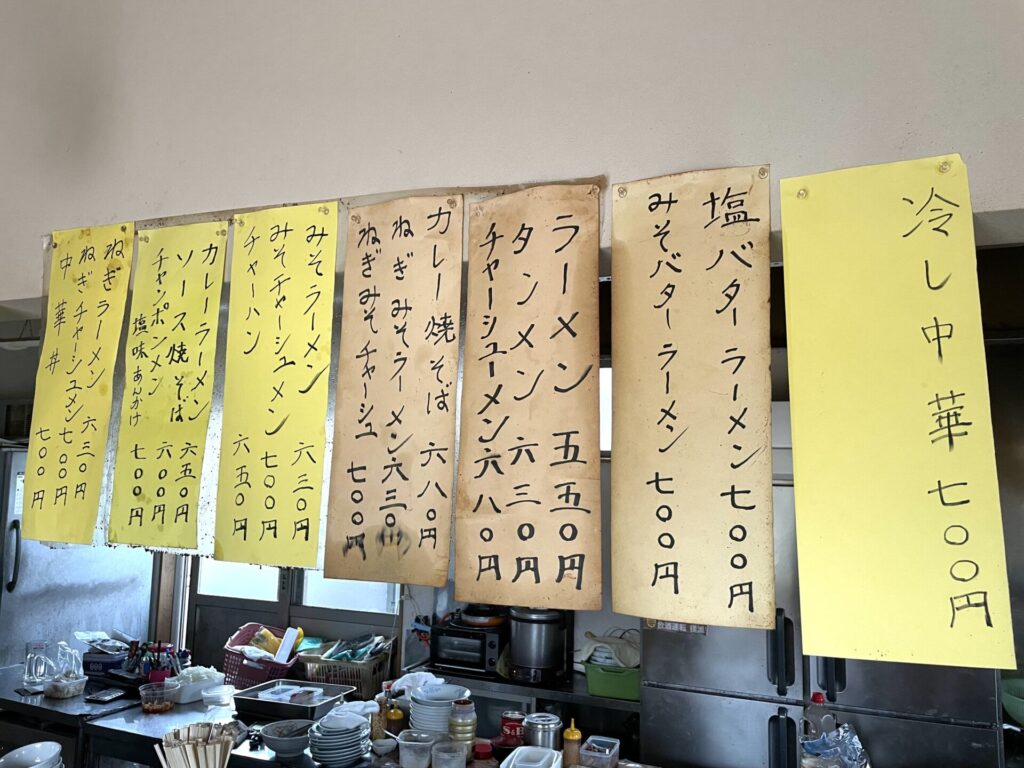 冷し中華 七〇〇円
塩バターラーメン 七〇〇円
みそバターラーメン 七〇〇円
ラーメン 五五〇円
タンメン 六三〇円
チャーシューメン 六八〇円
カレー焼そば 六八〇円
ねぎみそラーメン 六三〇
ねぎみそチャーシュ 七〇〇円
みそラーメン 六三〇円
みそチャーシュメン 七〇〇円
チャーハン 六五〇円
カレーラーメン 六五〇円
ソース焼そば 六〇〇円
チャンポンメン 七〇〇円
塩味あんかけ
ねぎラーメン 六三〇円
ねぎチャーシュメン 七〇〇円
中華丼 七〇〇円
S&B